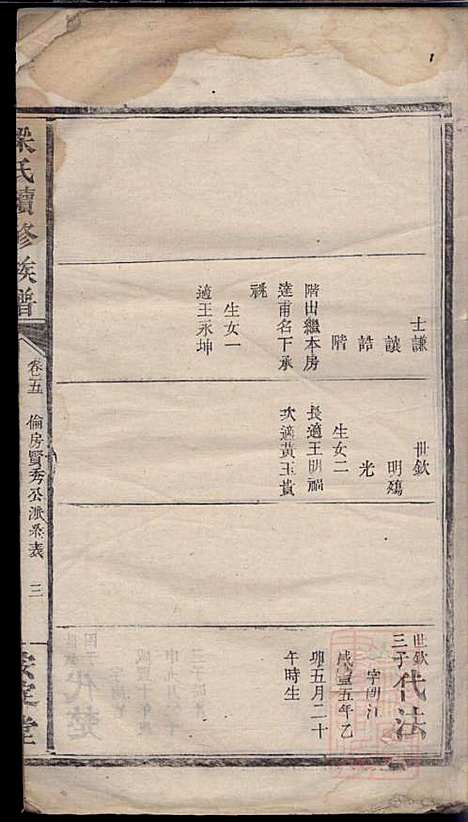 士謙
讓
誥
階
階出繼本房
達甫名下承
祧
生女一
適王永坤
世欽
明
光
生女二
長適王明
次適黃玉貴
世欽
三子
代法
字明
咸豐五年乙
卯五月二十
午時生
梁氏續修族譜
卷五
倫房賢秀公派系表
三
安定堂